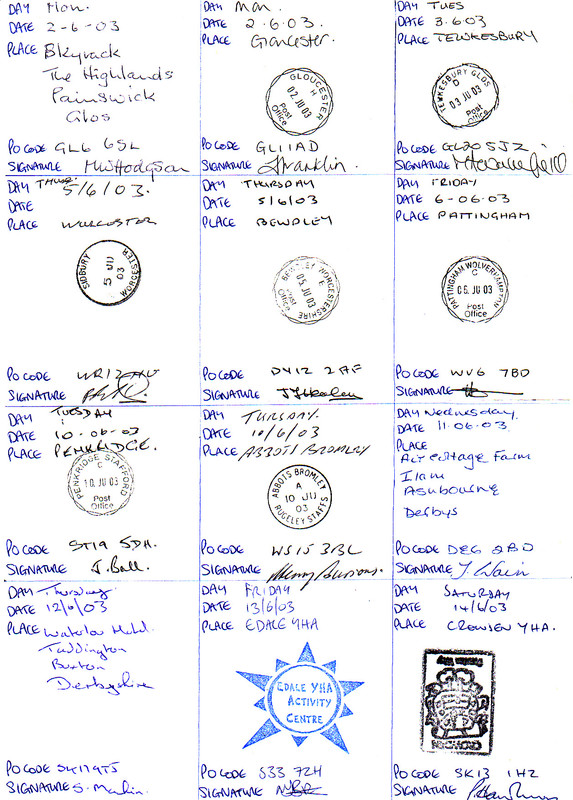 DAY Mon.
DATE 2-6-03
PLACE Bkyrack
The Highlands
Painswick
Glos
PO CODE GL6 6SL
SIGNATURE MWHodgson
DAY Mon.
DATE 2.6.03
PLACE Gloucester.
GLOUCESTER
H
02 JU 03
Post
Office
PO CODE GL11AD
SIGNATURE Franklin.
DAY TUES
DATE 3.6.03
PLACE TEWKESBURY
TEWKESBURY GLOS
D
03 JU 03
Post
Office
PO CODE GL20 5JZ
SIGNATURE
DAY THURS.
DATE 5/6/03.
PLACE WORCESTER
SIDBURY
5 JU
03
WORCESTER
PO CODE
SIGNATURE
DAY THURSDAY
DATE 5/6/03
PLACE BEWDLEY
BEWDLEY WORCESTERSHIRE
E
05 JU 03
Post
Office
PO CODE DY12 2AF
SIGNATURE
DAY FRIDAY
DATE 6-06-03
PLACE PATTINGHAM
PATTINGHAM WOLVERHAMPTON
C
06 JU 03
Post
Office
PO CODE WV6 7BD
SIGNATURE
DAY TUESDAY
DATE 10-06-03
PLACE PENKRIDGE.
PENKRIDGE STAFFORD
C
10 JU 03
Post
Office
PO CODE ST19 5DH.
SIGNATURE J. Ball.
DAY TURSDAY.
DATE 10/6/03
PLACE ABBOTS BROMLEY
ABBOTS BROMLEY
A
10 JU
03
RUGELEY STAFFS
PO CODE WS15 3BL
SIGNATURE
DAY Wednesday
DATE 11.06.03
PLACE
Air Cottage Farm
Ilam
Ashbourne
Derbys
PO CODE DE6 2BD
SIGNATURE J Wain
DAY Thursday
DATE 12/6/03
PLACE Waterloo Hotel.
Taddington
Buxton
Derbyshire
PO CODE SK179TJ
SIGNATURE S. Marlin.
DAY FRIDAY
DATE 13/6/03
PLACE EDALE YHA
EDALE YHA
ACTIVITY
CENTRE
PO CODE S33 7ZH
SIGNATURE
DAY SATURDAY
DATE 14/6/03
PLACE CROWDEN YHA.
PO CODE SK13 1HZ
SIGNATURE